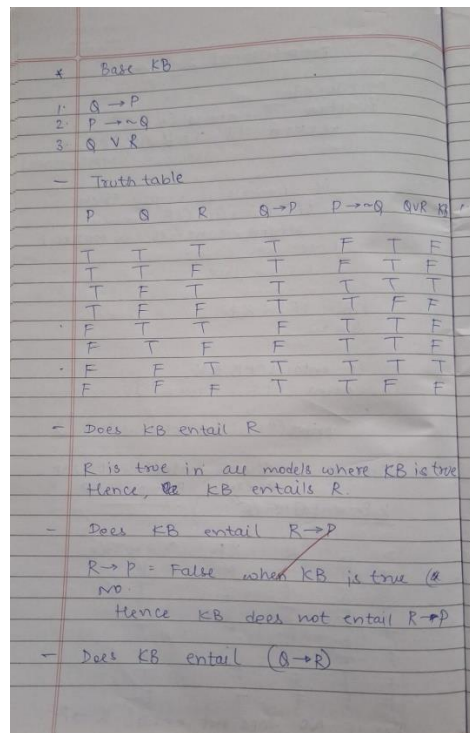 * Base KB
1. Q → P
2. P → ~Q
3. Q V R
— Truth table
P Q R Q→P P→~Q QVR KB
T T T T F T F
T T F T F T F
T F T T T T T
T F F T T F F
F T T F T T F
F T F F T T F
F F T T T T T
F F F T T F F
— Does KB entail R
R is true in all models where KB is true
Hence, KB entails R.
— Does KB entail R→P
R→P = False when KB is true (
NO.
Hence KB does not entail R→P
— Does KB entail (Q→R)